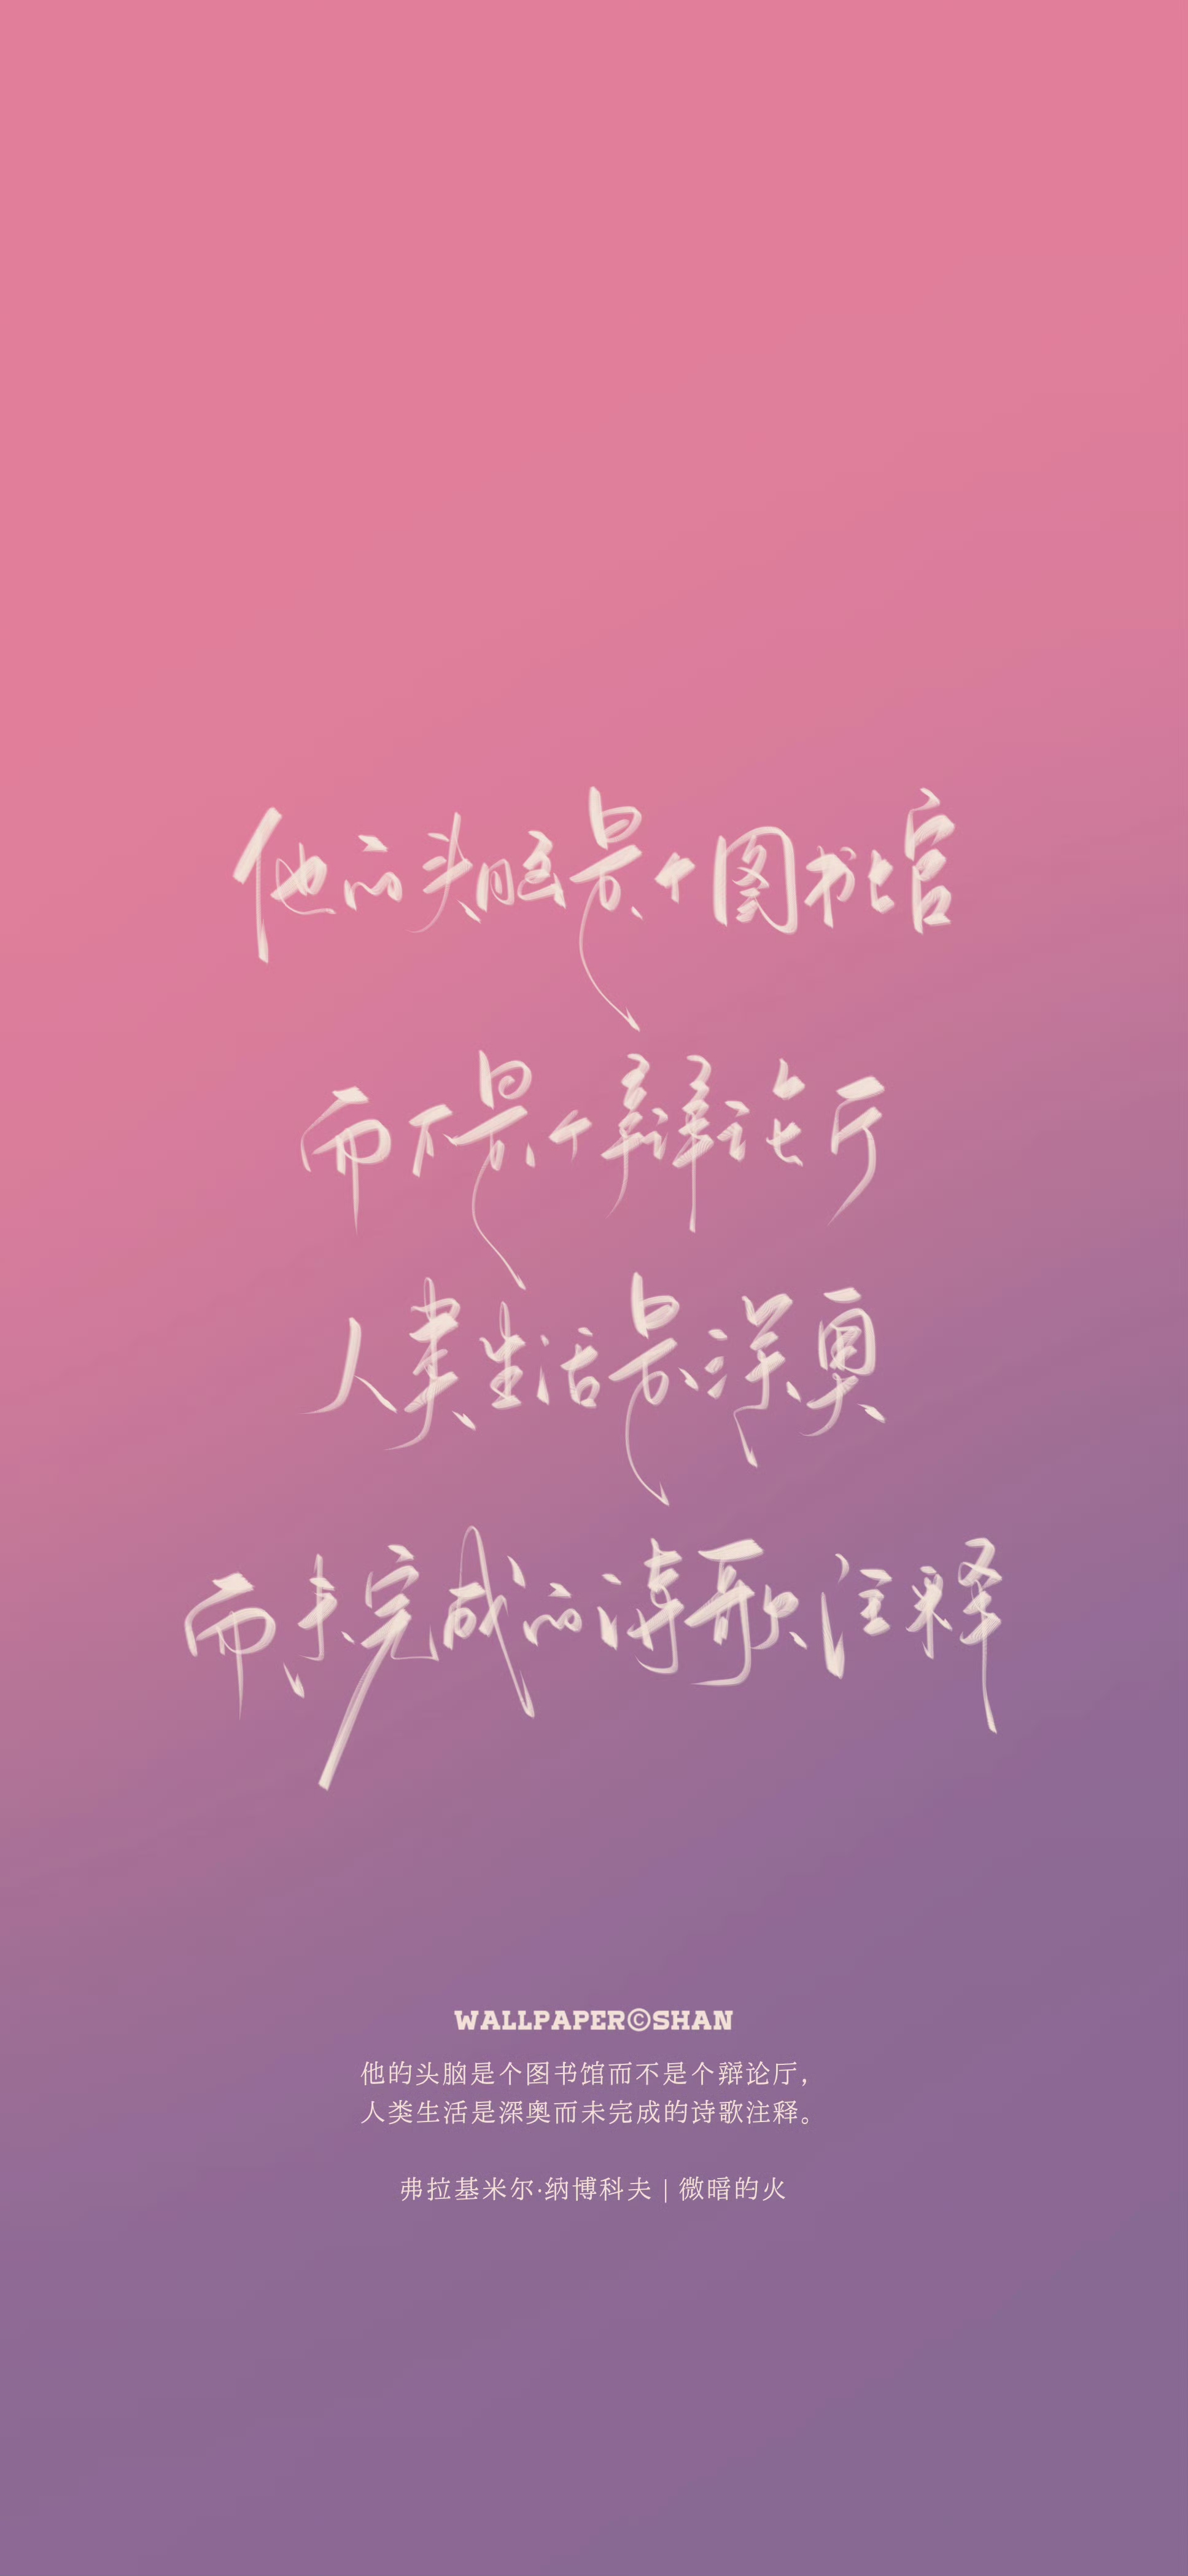 他的头脑是个图书馆
而不是个辩论厅
人类生活是深奥
而未完成的诗歌注释
WALLPAPER©SHAN
他的头脑是个图书馆而不是个辩论厅，
人类生活是深奥而未完成的诗歌注释。
弗拉基米尔·纳博科夫 | 微暗的火